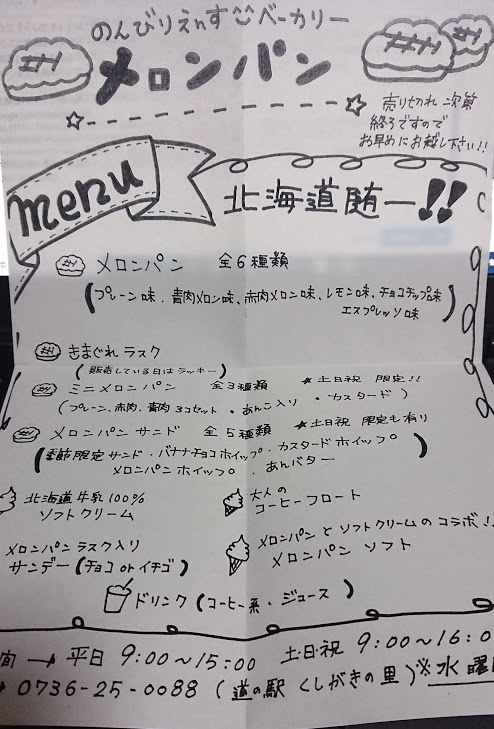 のんびりえんす ベーカリー
メロンパン
売り切れ 次第
終了ですので
お早めにお越し下さい!!
menu
北海道随一!!
メロンパン 全6種類
(プレーン味、青肉メロン味、赤肉メロン味、レモン味、チョコチップ味
エスプレッソ味)
きまぐれ ラスク
(販売している日はラッキー)
ミニメロンパン 全3種類 ★土日祝 限定!!
(プレーン、赤肉、青肉 3コセット ・あんこ入り ・カスタード)
メロンパン サンド 全5種類 ★土日祝 限定も有り
(季節限定サンド・バナナチョコホイップ・カスタードホイップ・
メロンパン ホイップ ・あんバター)
北海道牛乳100%
ソフトクリーム
大人の
コーヒーフロート
メロンパン ラスク入り
サンデー(チョコ or イチゴ)
メロンパンとソフトクリームのコラボ!!
メロンパン ソフト
ドリンク(コーヒー系・ジュース)
間 → 平日 9:00〜15:00 土・日・祝 9:00〜16:0
0736-25-0088 (道の駅 くしがきの里) ※水曜